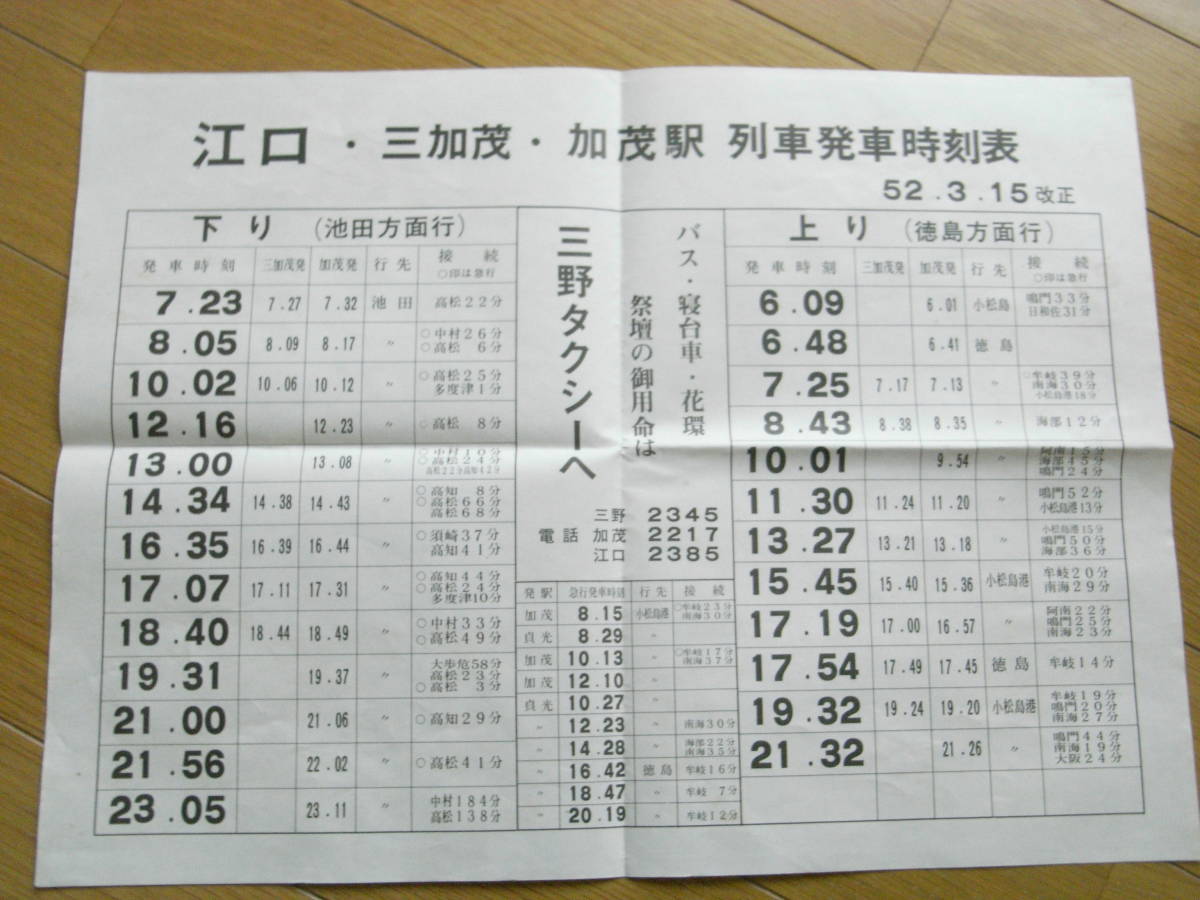 江口・三加茂・加茂駅 列車発車時刻表
52.3.15改正
下り (池田方面行)
発車時刻 三加茂発 加茂発 行先 接続 ○印は急行
7.23 7.27 7.32 池田 高松22分
8.05 8.09 8.17 〃 ○中村26分 ○高松 6分
10.02 10.06 10.12 〃 ○高松25分 多度津1分
12.16 12.23 〃 ○高松 8分
13.00 13.08 〃 ○中村10分 ○高松24分 高松22分高知42分
14.34 14.38 14.43 〃 ○高知 8分 ○高松66分 高松68分
16.35 16.39 16.44 〃 ○須崎37分 高知41分
17.07 17.11 17.31 〃 ○高知44分 ○高松24分 多度津10分
18.40 18.44 18.49 〃 ○中村33分 ○高松49分
19.31 19.37 〃 大歩危58分 高松23分 ○高松 3分
21.00 21.06 〃 ○高知29分
21.56 22.02 〃 ○高松41分
23.05 23.11 〃 中村184分 高松138分
バス・寝台車・花環
祭壇の御用命は
三野タクシーへ
三野 2345
電話 加茂 2217
江口 2385
発駅 急行発車時刻 行先 接続
加茂 8.15 小松島港 ○牟岐23分 南海30分
貞光 8.29 〃
加茂 10.13 〃 ○牟岐17分 南海37分
加茂 12.10 〃
貞光 10.27 〃
〃 12.23 〃 南海30分
〃 14.28 〃 海部22分 南海35分
〃 16.42 徳島 牟岐16分
〃 18.47 〃 牟岐 7分
〃 20.19 〃 牟岐12分
上り (徳島方面行)
発車時刻 三加茂発 加茂発 行先 接続 ○印は急行
6.09 6.01 小松島 鳴門33分 日和佐31分
6.48 6.41 徳島
7.25 7.17 7.13 〃 ○牟岐39分 南海30分 小松島港18分
8.43 8.38 8.35 〃 海部12分
10.01 9.54 〃 阿南15分 海部45分 鳴門24分
11.30 11.24 11.20 〃 鳴門52分 小松島港13分
13.27 13.21 13.18 〃 小松島港15分 鳴門50分 海部36分
15.45 15.40 15.36 小松島港 牟岐20分 南海29分
17.19 17.00 16.57 〃 阿南22分 鳴門25分 南海23分
17.54 17.49 17.45 徳島 牟岐14分
19.32 19.24 19.20 小松島港 牟岐19分 鳴門20分 南海27分
21.32 21.26 〃 鳴門44分 南海19分 大阪24分